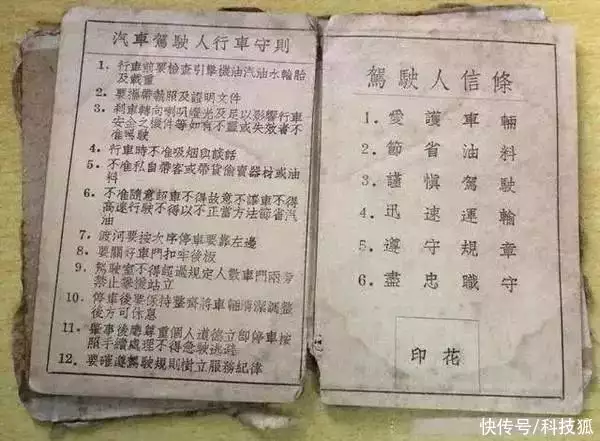 汽車駕駛人行車守則
1. 行車前要檢查引擎機油汽油水輪胎
及載重
2. 要攜帶載照及證明文件
3. 剎車轉向喇叭燈光及足以影響行車
安全之機件等如有不靈或失效者不
准駛駛
4. 行車時不准吸烟與談話
5. 不准私自帶客或帶貨偷賣器材或油
料
6. 不准隨意超車不得故意不讓車不得
高速行駛不得以不正當方法節省汽
油
7. 渡河要按次序停車要靠左邊
8. 要關好車門扣牢後板
9. 駕駛室不得超過規定人數車門兩旁
禁止攀援站立
10. 停車後要保持整齊將車輛清潔調整
後方可休息
11. 肇事後應尊重個人道德立即停車按
照手續處理不得急駛逃避
12. 要確遵駕駛規則樹立服務紀律
駕駛人信條
1. 愛護車輛
2. 節省油料
3. 謹慎駕駛
4. 迅速運輸
5. 遵守規章
6. 盡忠職守
印花
快传号/科技狐